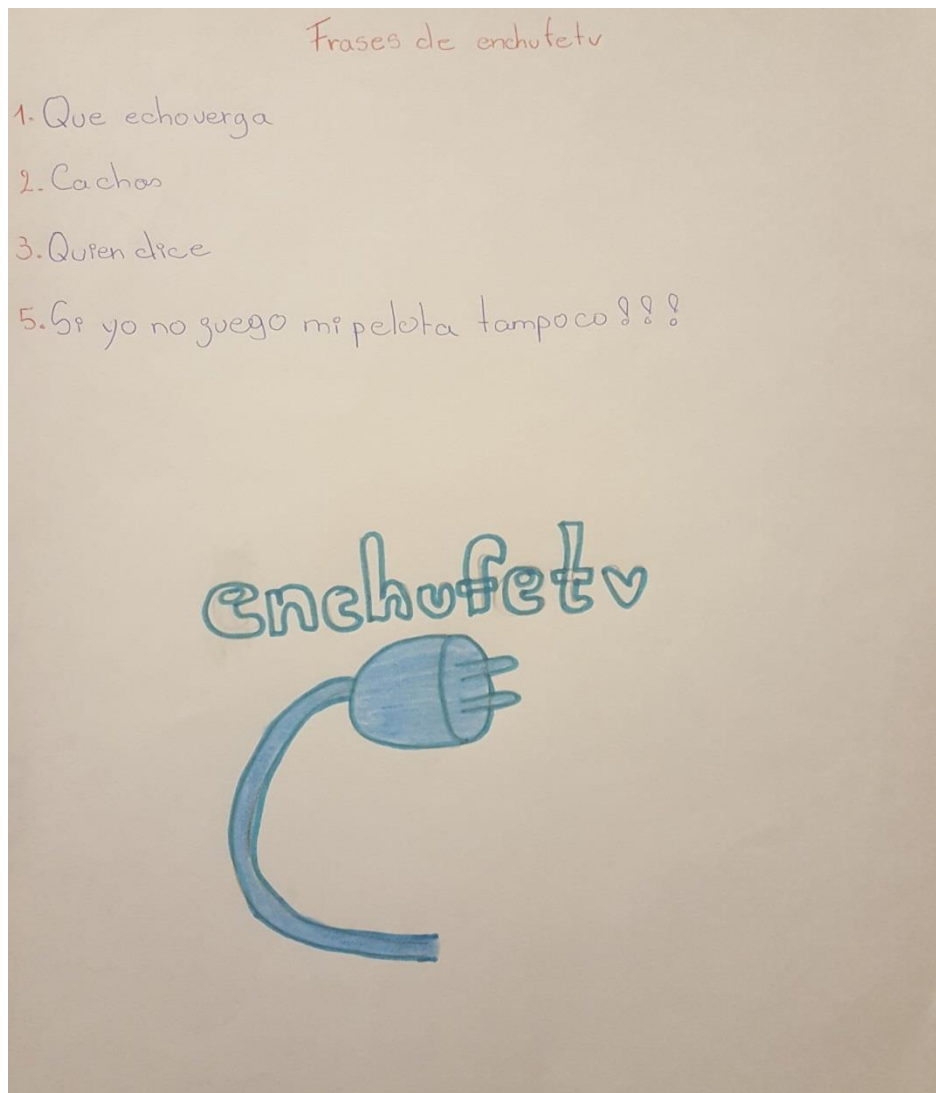 Frases de enchufetv
1. Que echoverga
2. Cachas
3. Quien dice
5. Si yo no juego mi pelota tampoco!!!
enchufetv